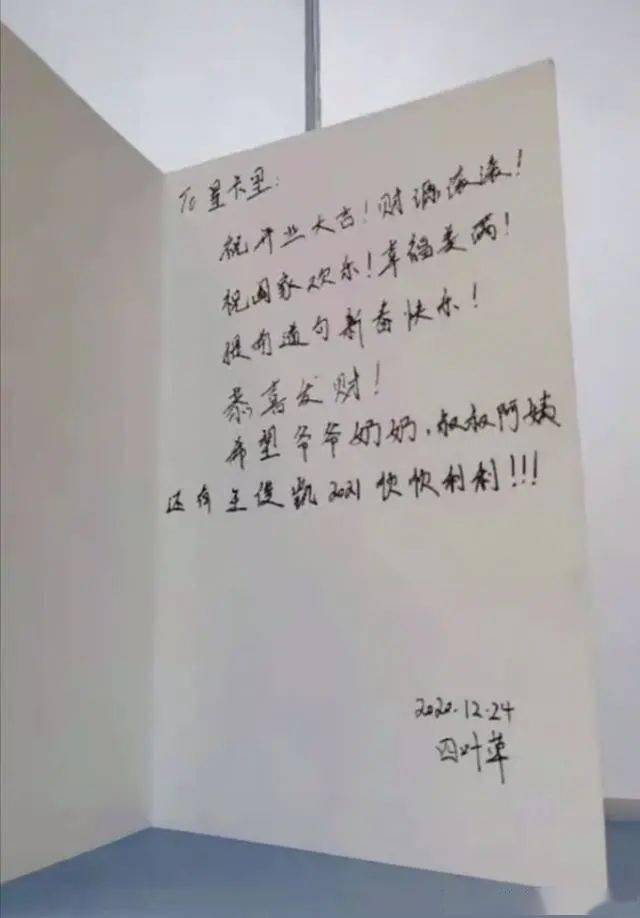 To 星卡里:
祝开业大吉!财源滚滚!
祝阖家欢乐!幸福美满!
提前道句新春快乐!
恭喜发财!
希望爷爷奶奶,叔叔阿姨
还有王俊凯2021快快利利!!!
2020.12.24
四叶草